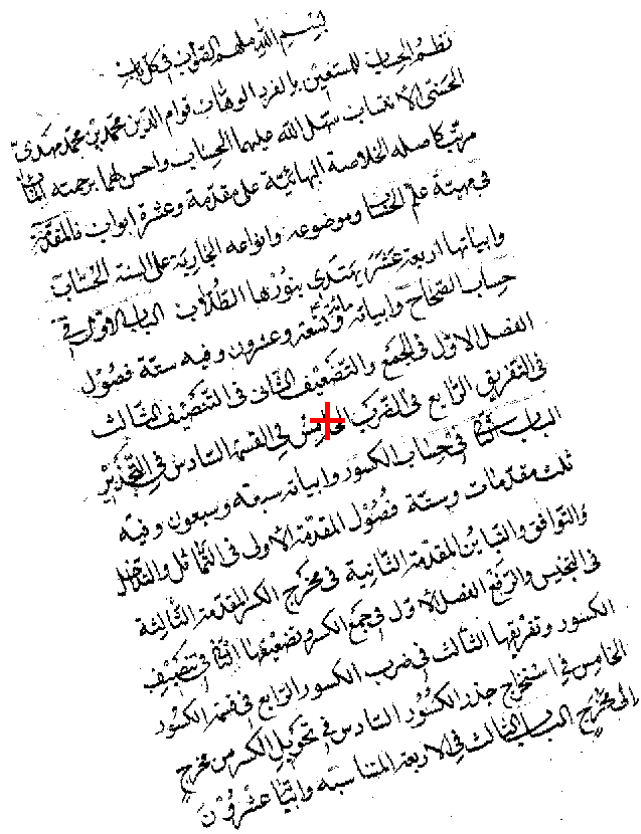 بسم الله ملهم الصواب فى كل باب
نظم الحساب للمستعين بالفرد الوهاب قوام الدين محمد بن محمد مهدى
الحسنى الانتساب سهل الله عليهما الحساب واحسن لهما برحمته المآب
مرتب كاصله الخلاصة البهائية على مقدمة وعشرة ابواب فالمقدمة
فى مهية علم الحساب وموضوعه وانواعه الجارية على السنة الحساب
وابياتها اربعة عشر يهتدى بنورها الطلاب الباب الاول فى
حساب الصحاح وابياته مائة وتسعة وعشرون وفيه ستة فصول
الفصل الاول فى الجمع والتضعيف الثانى فى التنصيف الثالث
فى التفريق الرابع فى الضرب الخامس فى القسمة السادس فى التجذير
الباب الثانى فى حساب الكسور وابياته سبعة وسبعون وفيه
ثلث مقدمات وستة فصول المقدمة الاولى فى التماثل والتداخل
والتوافق والتباين المقدمة الثانية فى مخرج الكسر المقدمة الثالثة
فى التجنيس والرفع الفصل الاول فى جمع الكسر وتضعيفها الثانى فى تنصيف
الكسور وتفريقها الثالث فى ضرب الكسور الرابع فى قسمة الكسور
الخامس فى استخراج جذر الكسور السادس فى تحويل الكسر من مخرج
الى مخرج الباب الثالث فى الاربعة المتناسبة وابياتها عشرون